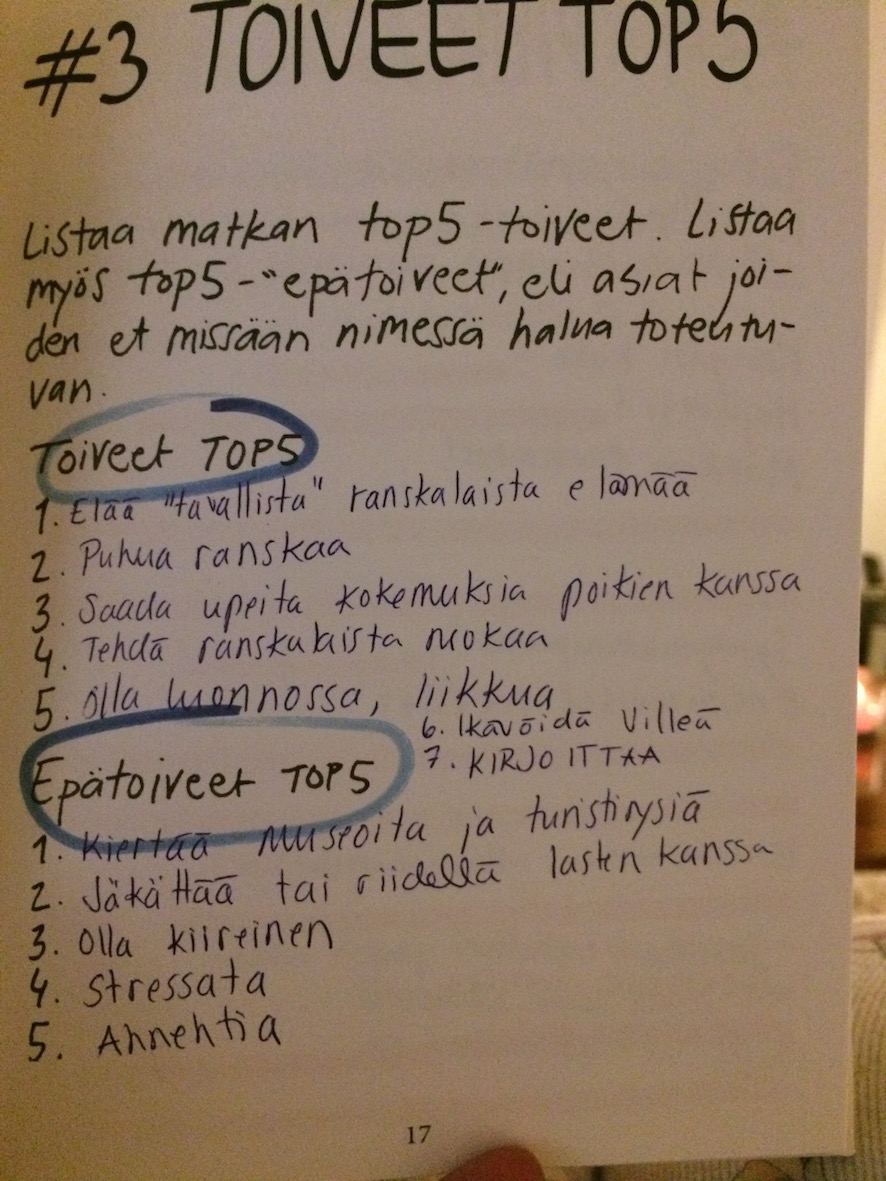 #3 TOIVEET TOP5
Listaa matkan top5-toiveet. Listaa
myös top5-"epätoiveet", eli asiat joi-
den et missään nimessä halua toteutu-
van.
Toiveet TOP5
1. Elää "tavallista" ranskalaista elämää
2. Puhua ranskaa
3. Saada upeita kokemuksia poikien kanssa
4. Tehdä ranskalaista ruokaa
5. Olla luonnossa, liikkua
6. Ikävöidä Villeä
7. KIRJOITTAA
Epätoiveet TOP5
1. Kiertää museoita ja turistirysiä
2. Jäkättää tai riidellä lasten kanssa
3. Olla kiireinen
4. Stressata
5. Ahnehtia
17